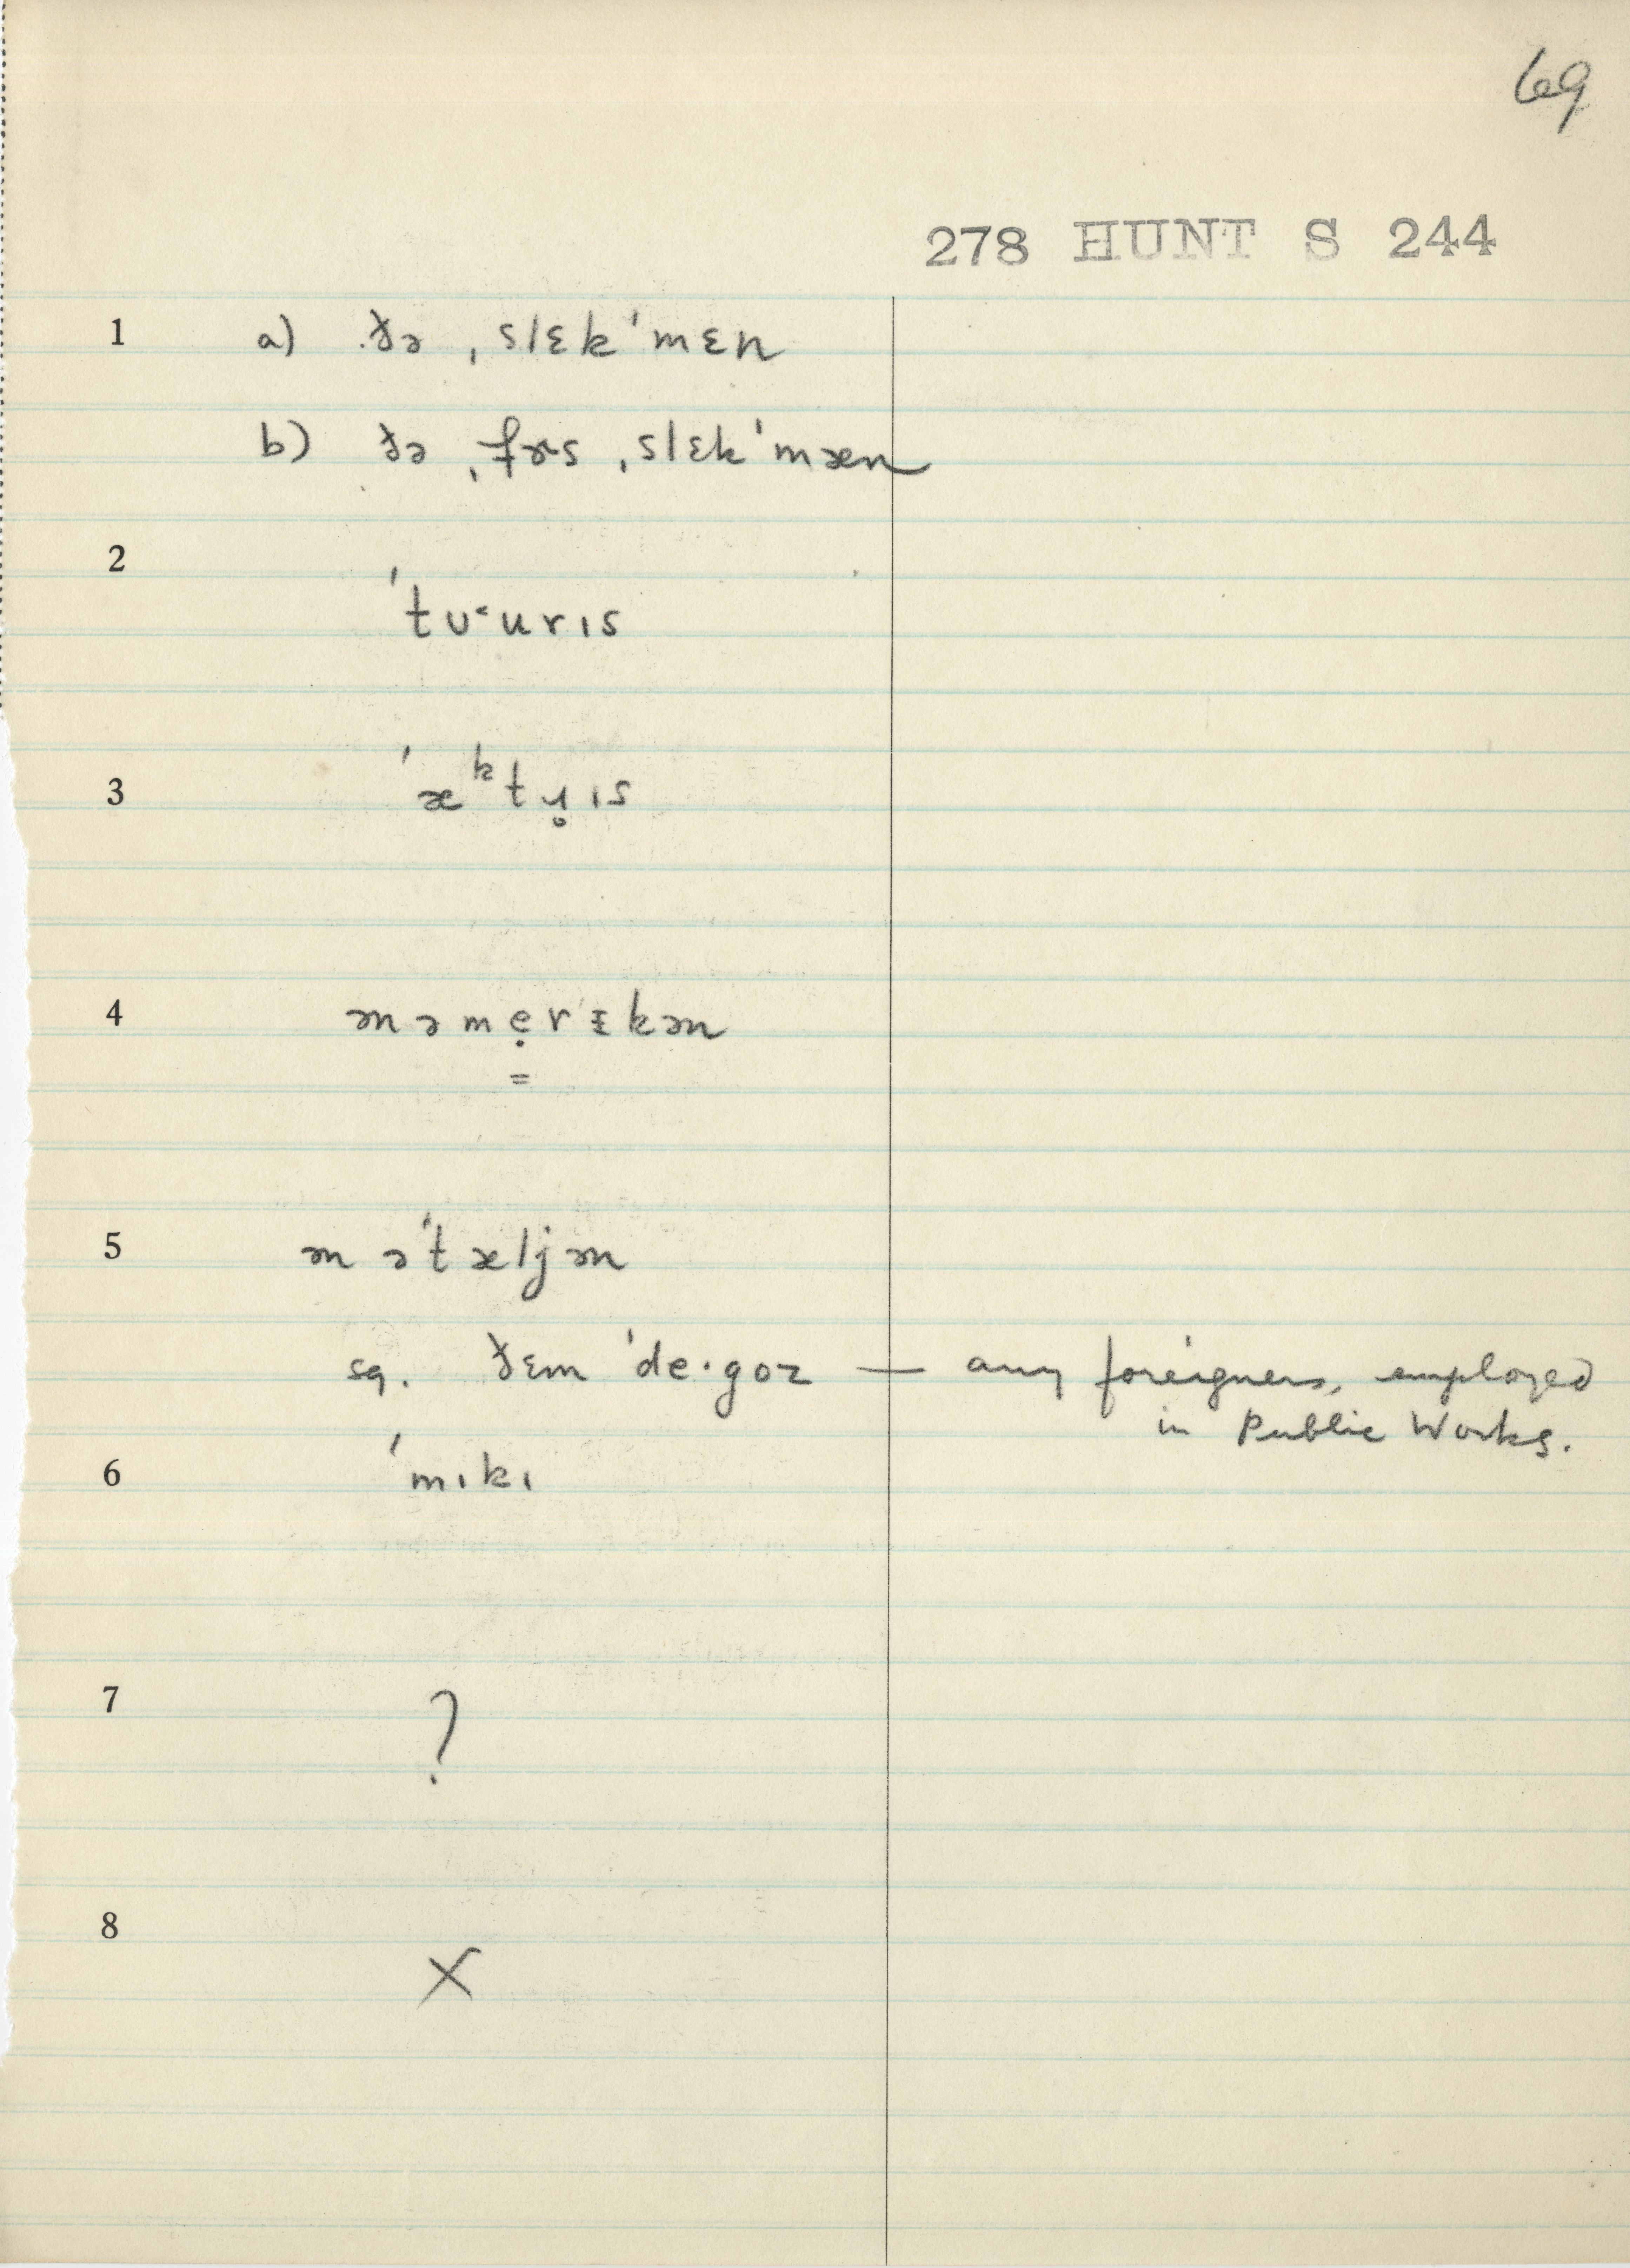 69
278 HUNT S 244
1 a) ðə ˌslɛkˈmɛn
b) ðə ˌfɚs ˌslɛkˈmæn
2
ˈtʊ˂urɪs
3 ˈæᵏtɹ̥ɪs
4 ən əmẹrɪkən
=
5 ən əˈtæljən
sg. ðɛm ˈde·goz — any foreigners, employed
in Public Works.
6 ˈmɪkɪ
7 ?
8
X